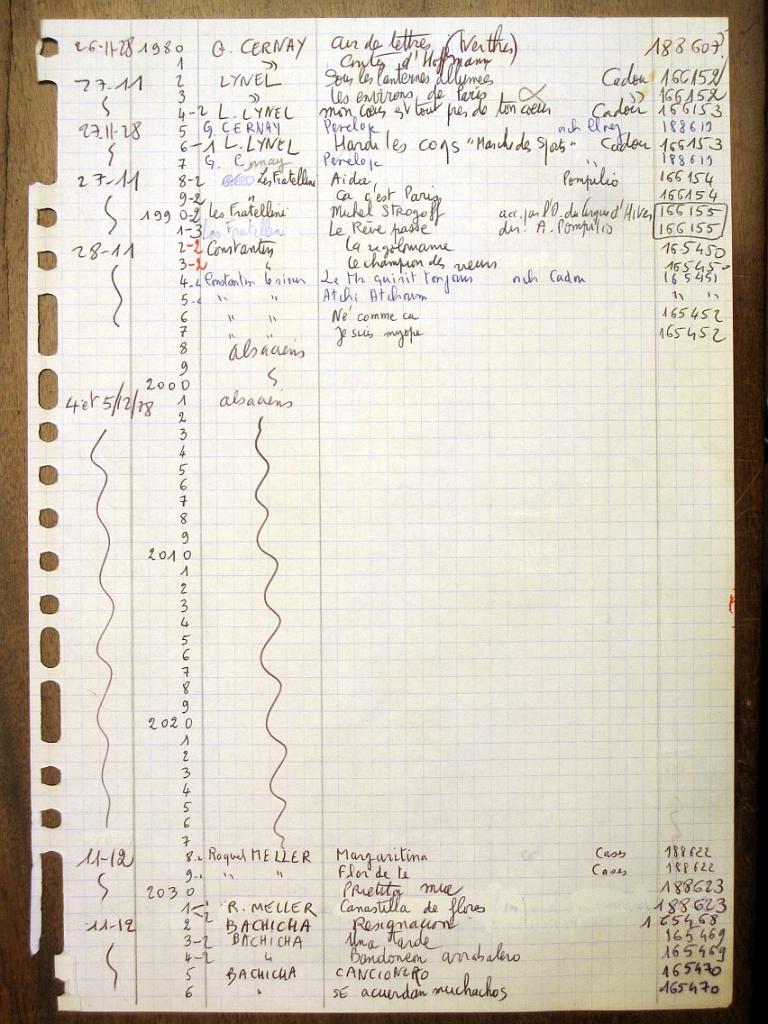 26-11-28 1980 G. CERNAY air de lettres (Werther) 188607
1 " Contes d'Hoffmann
27-11 2 LYNEL Sous les lanternes allumées Cadou 166152
3 " les environs de Paris " 166152
4-2 L. LYNEL mon cœur est tout près de ton cœur Cadou 166153
27.11-28 5 G. CERNAY Pénélope orch 188619
6-1 L. LYNEL Hardi les coqs "Marche des Sports" Cadou 166153
7 G. Cernay Pénélope " 188619
27-11 8-2 Les Fratellini Aïda Pompilio 166154
9-2 " Ca c'est Paris 166154
1990-2 Les Fratellini Michel Strogoff acc. par l'O. du Cirque d'Hiver 166155
1-3 Les Fratellini Le Rêve passe dir. A. Pompilio 166155
28-11 2-2 Constantin La rigolomanie 165450
3-2 " Le champion des 165450
4-2 Constantin le rieur Le qui rit toujours orch Cadou 165451
5-2 " " Atchi Atchoum " "
6 " " Né comme ca 165452
7 " " Je suis myope 165452
8 alsaciens
9
2000
4 et 5/12/28 1 alsaciens
2
3
4
5
6
7
8
9
2010
1
2
3
4
5
6
7
8
9
2020
1
2
3
4
5
6
7
11-12 8-2 Raquel MELLER Margaritina Cases 188622
9-2 " " Flor de te Cases 188622
2030 Prietita mia 188623
1-2 R. MELLER Canastilla de flores 188623
11-12 2 BACHICHA Resignacion 165468
3-2 BACHICHA Una tarde 165469
4-2 " Bandoneon arrabalero 165469
5 BACHICHA CANCIONERO 165470
6 " SE acuerdan muchachos 165470